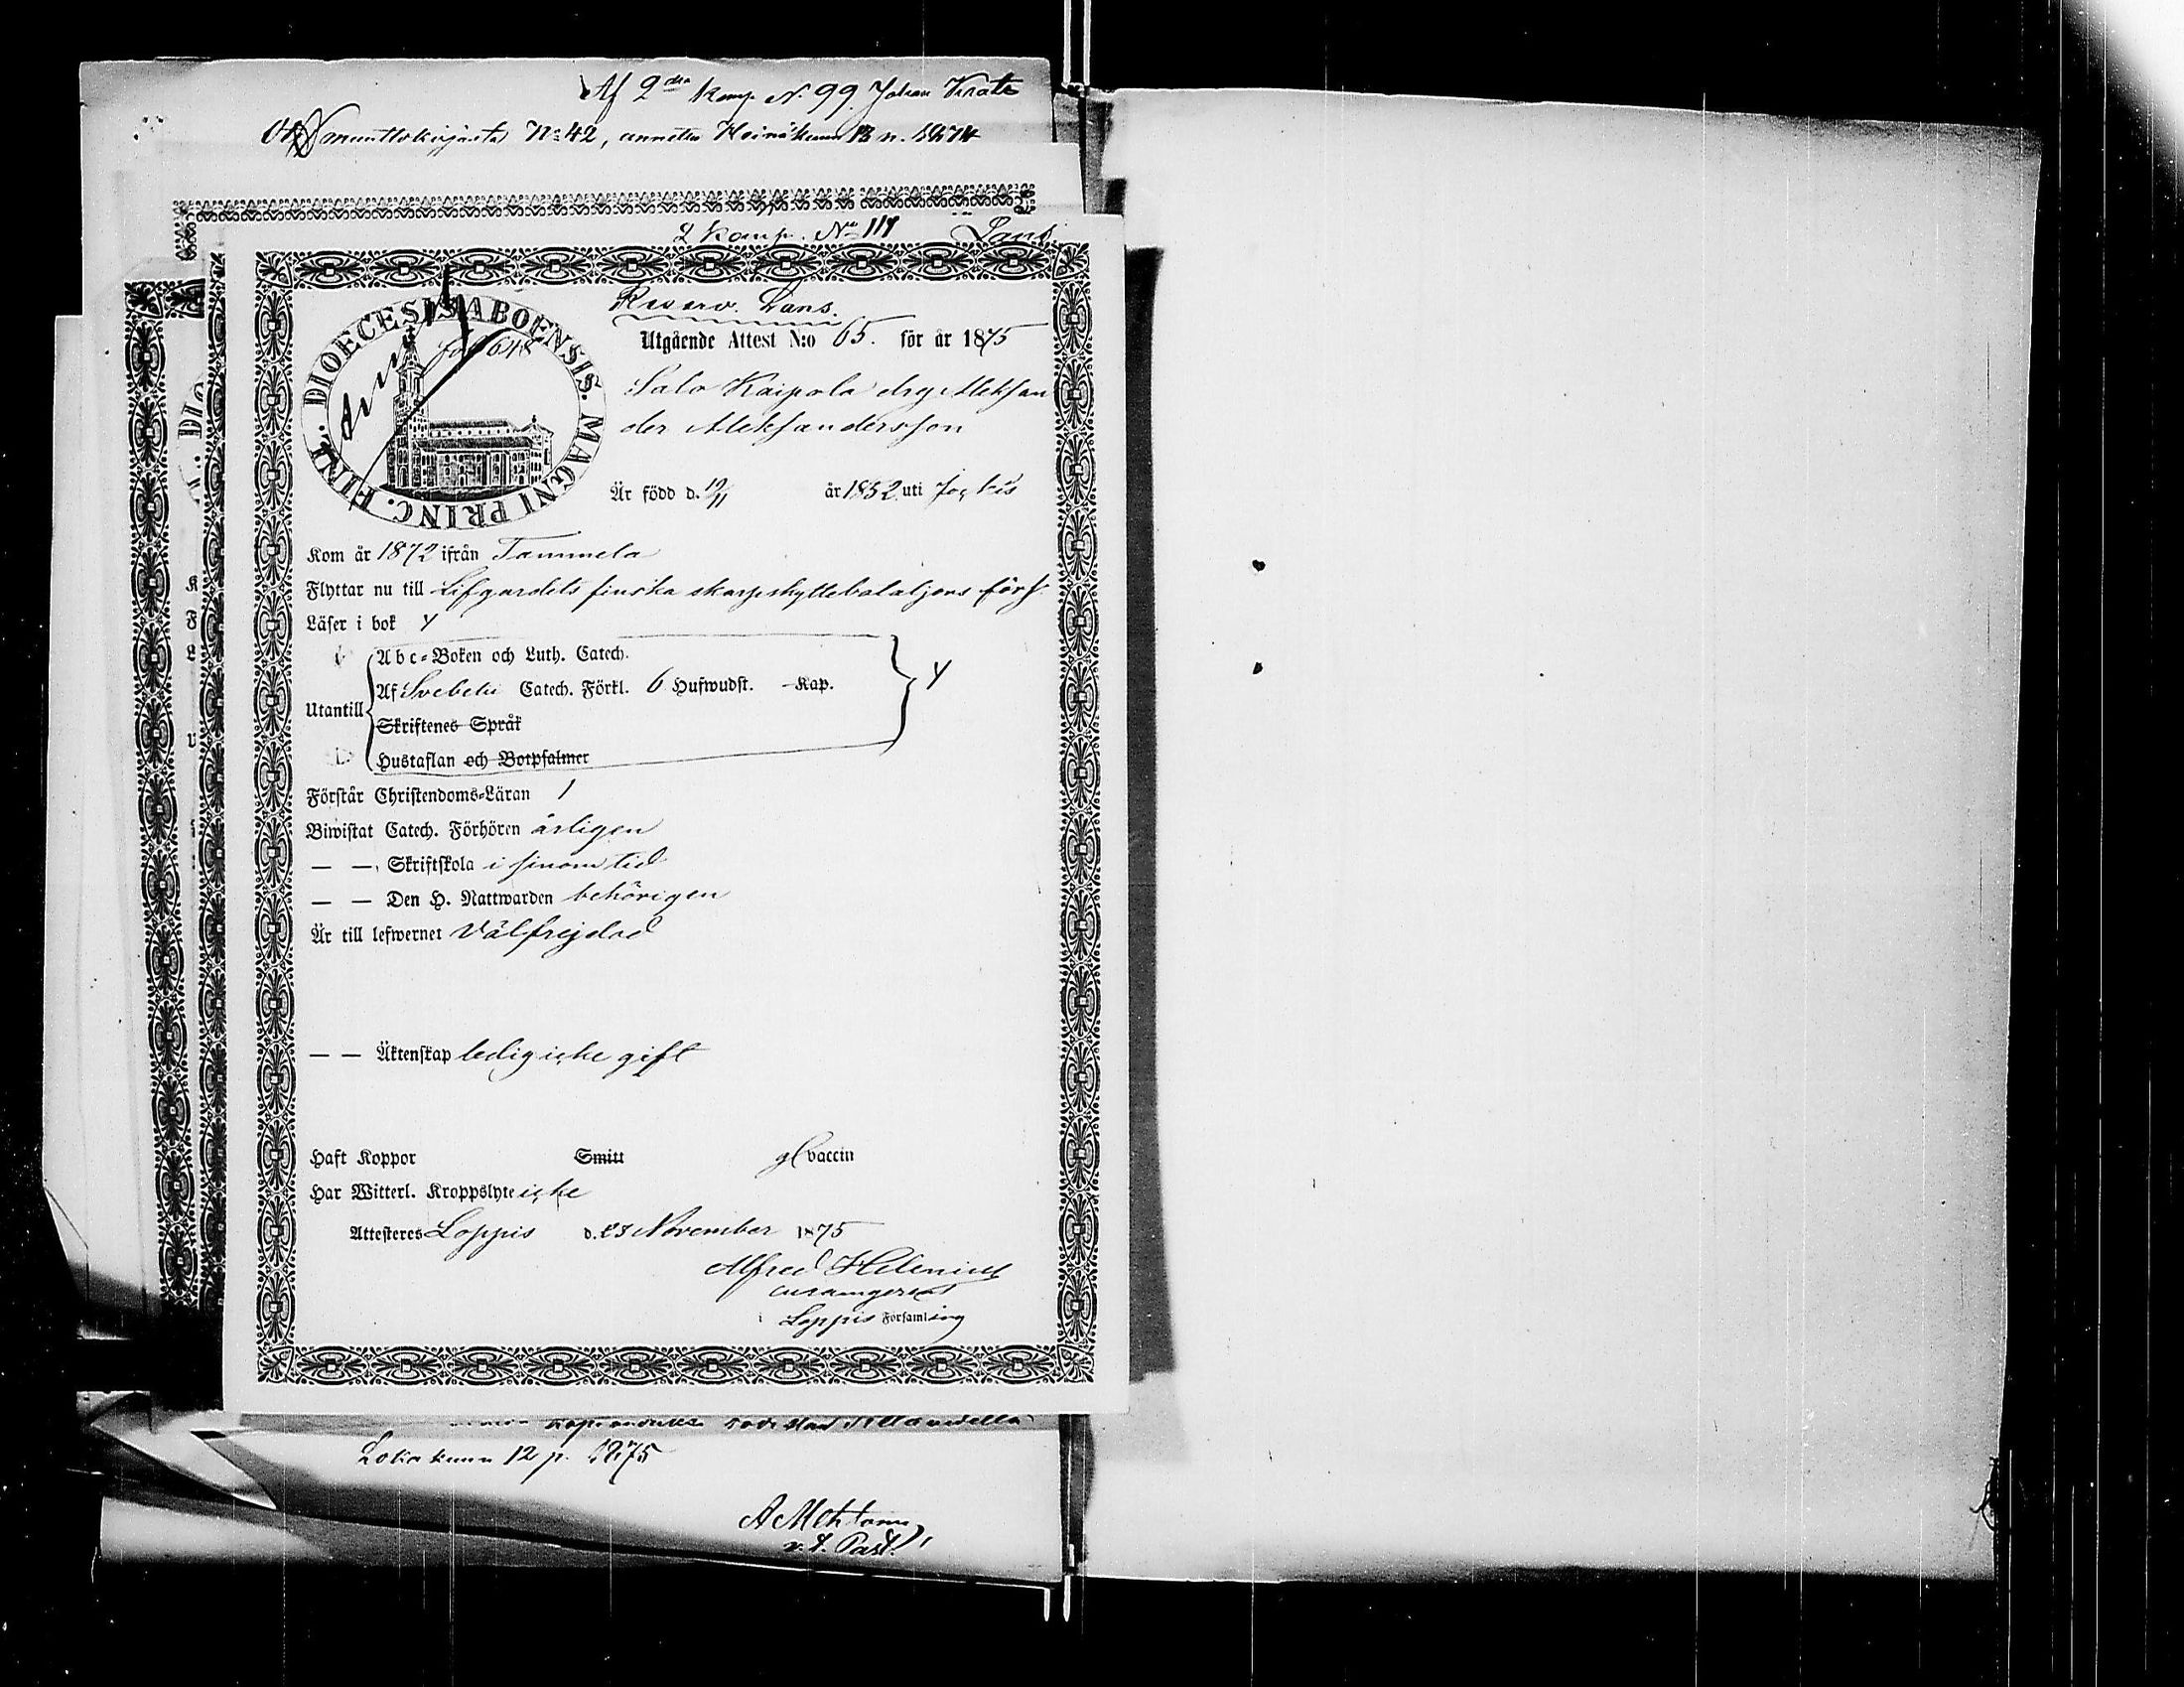 Af 2dra komp. N. 99. Johan
muuttokirjasta No 42, annettu Heinäkuun 13 p. 1874
2 Komp. No 119 Lans
Reserv. Lans.
DIOECESIS ABOENSIS. MAGNI PRINC. FINL.
fol 648
Utgående Attest N:o 65. för år 1875
Salo Kaipola drg Aleksan
der Aleksandersson
Är född d. 19/11 år 1852 uti Jockis
Kom år 1872 ifrån Tammela
Flyttar nu till Lifgardets finska skarpskyttebataljons förs.
Läser i bok Y
Abc-Boken och Luth. Catech.
Af Svebelii Catech. Förkl. 6 Hufwudst. Kap. Y
Utantill
Skriftenes Språk
Hustaflan och Botpsalmer
Förstår Christendoms-Läran 1
Biwistat Catech. Förhören årligen
— — Skriftskola i sinom tid
— — Den H. Nattwarden behörigen
Är till lefwernet Välfrejdad
— — Äktenskap ledig icke gift
Haft Koppor Smitt gl vaccin
Har Witterl. Kroppslyte icke
Attesteres Loppis d. 23 November 1875
Alfred Helenius
cur. am. gerens
Loppis Församling
Lokakuun 12 p. 1875
v. t. Past.